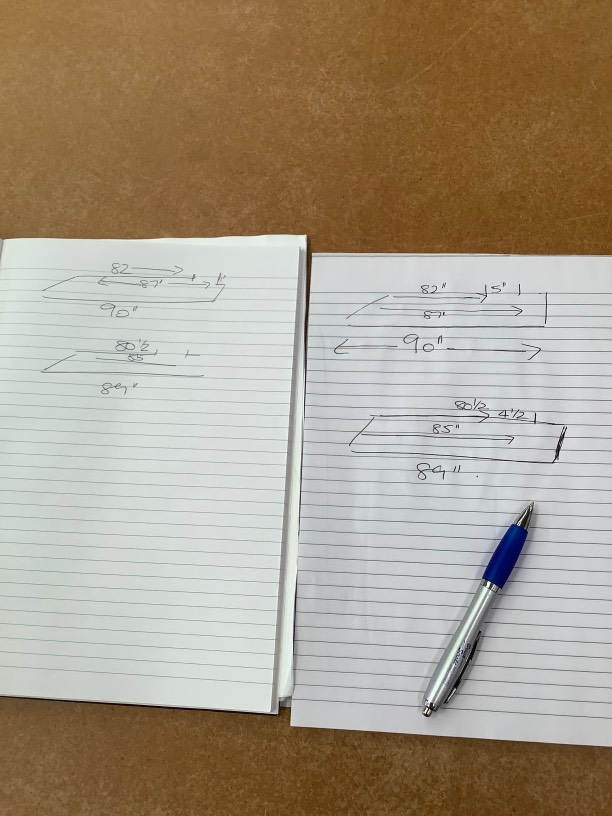 82
87"
1"
90"
80 1/2
85
89"
82" 5"
87"
90"
80 1/2 4 1/2
85"
89".